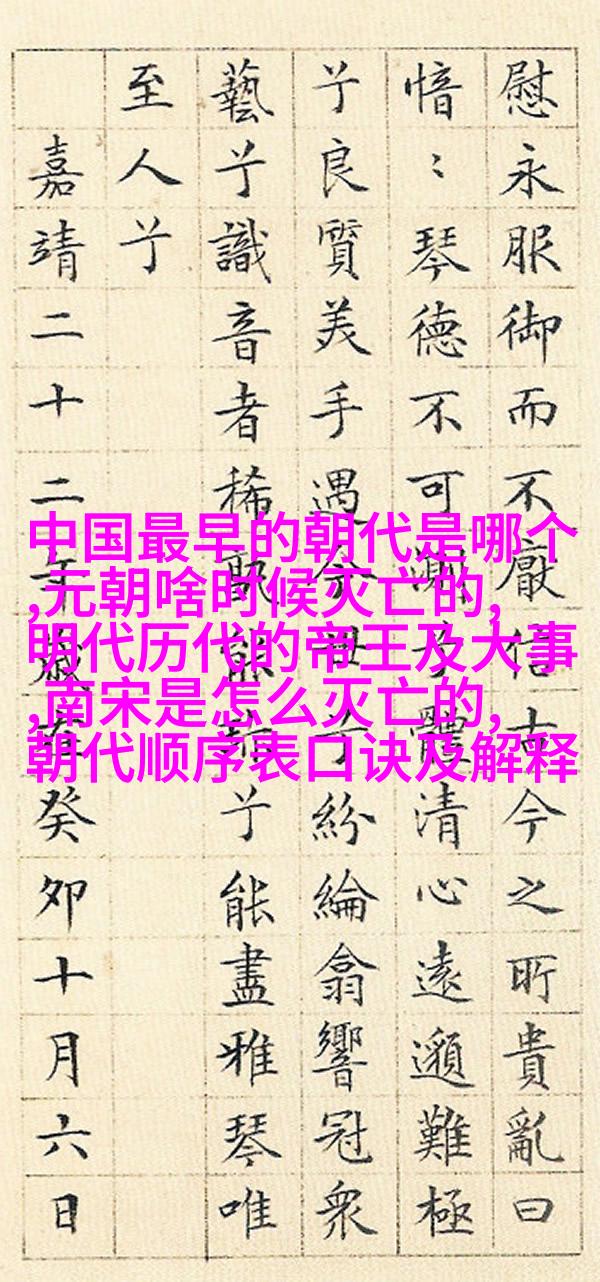 慰永服御而不厭信古今之所貴亂曰
愔〻琴德不可測兮體清心遠邈難極
兮良質美手遇今世兮紛綸翕響冠衆
藝兮識音者稀孰能珎兮能盡雅琴唯
至人兮
嘉靖二十二年歲在癸夘十月六日
中国最早的朝代是哪个
,元朝啥时候灭亡的,
明代历代的帝王及大事
,南宋是怎么灭亡的,
朝代顺序表口诀及解释